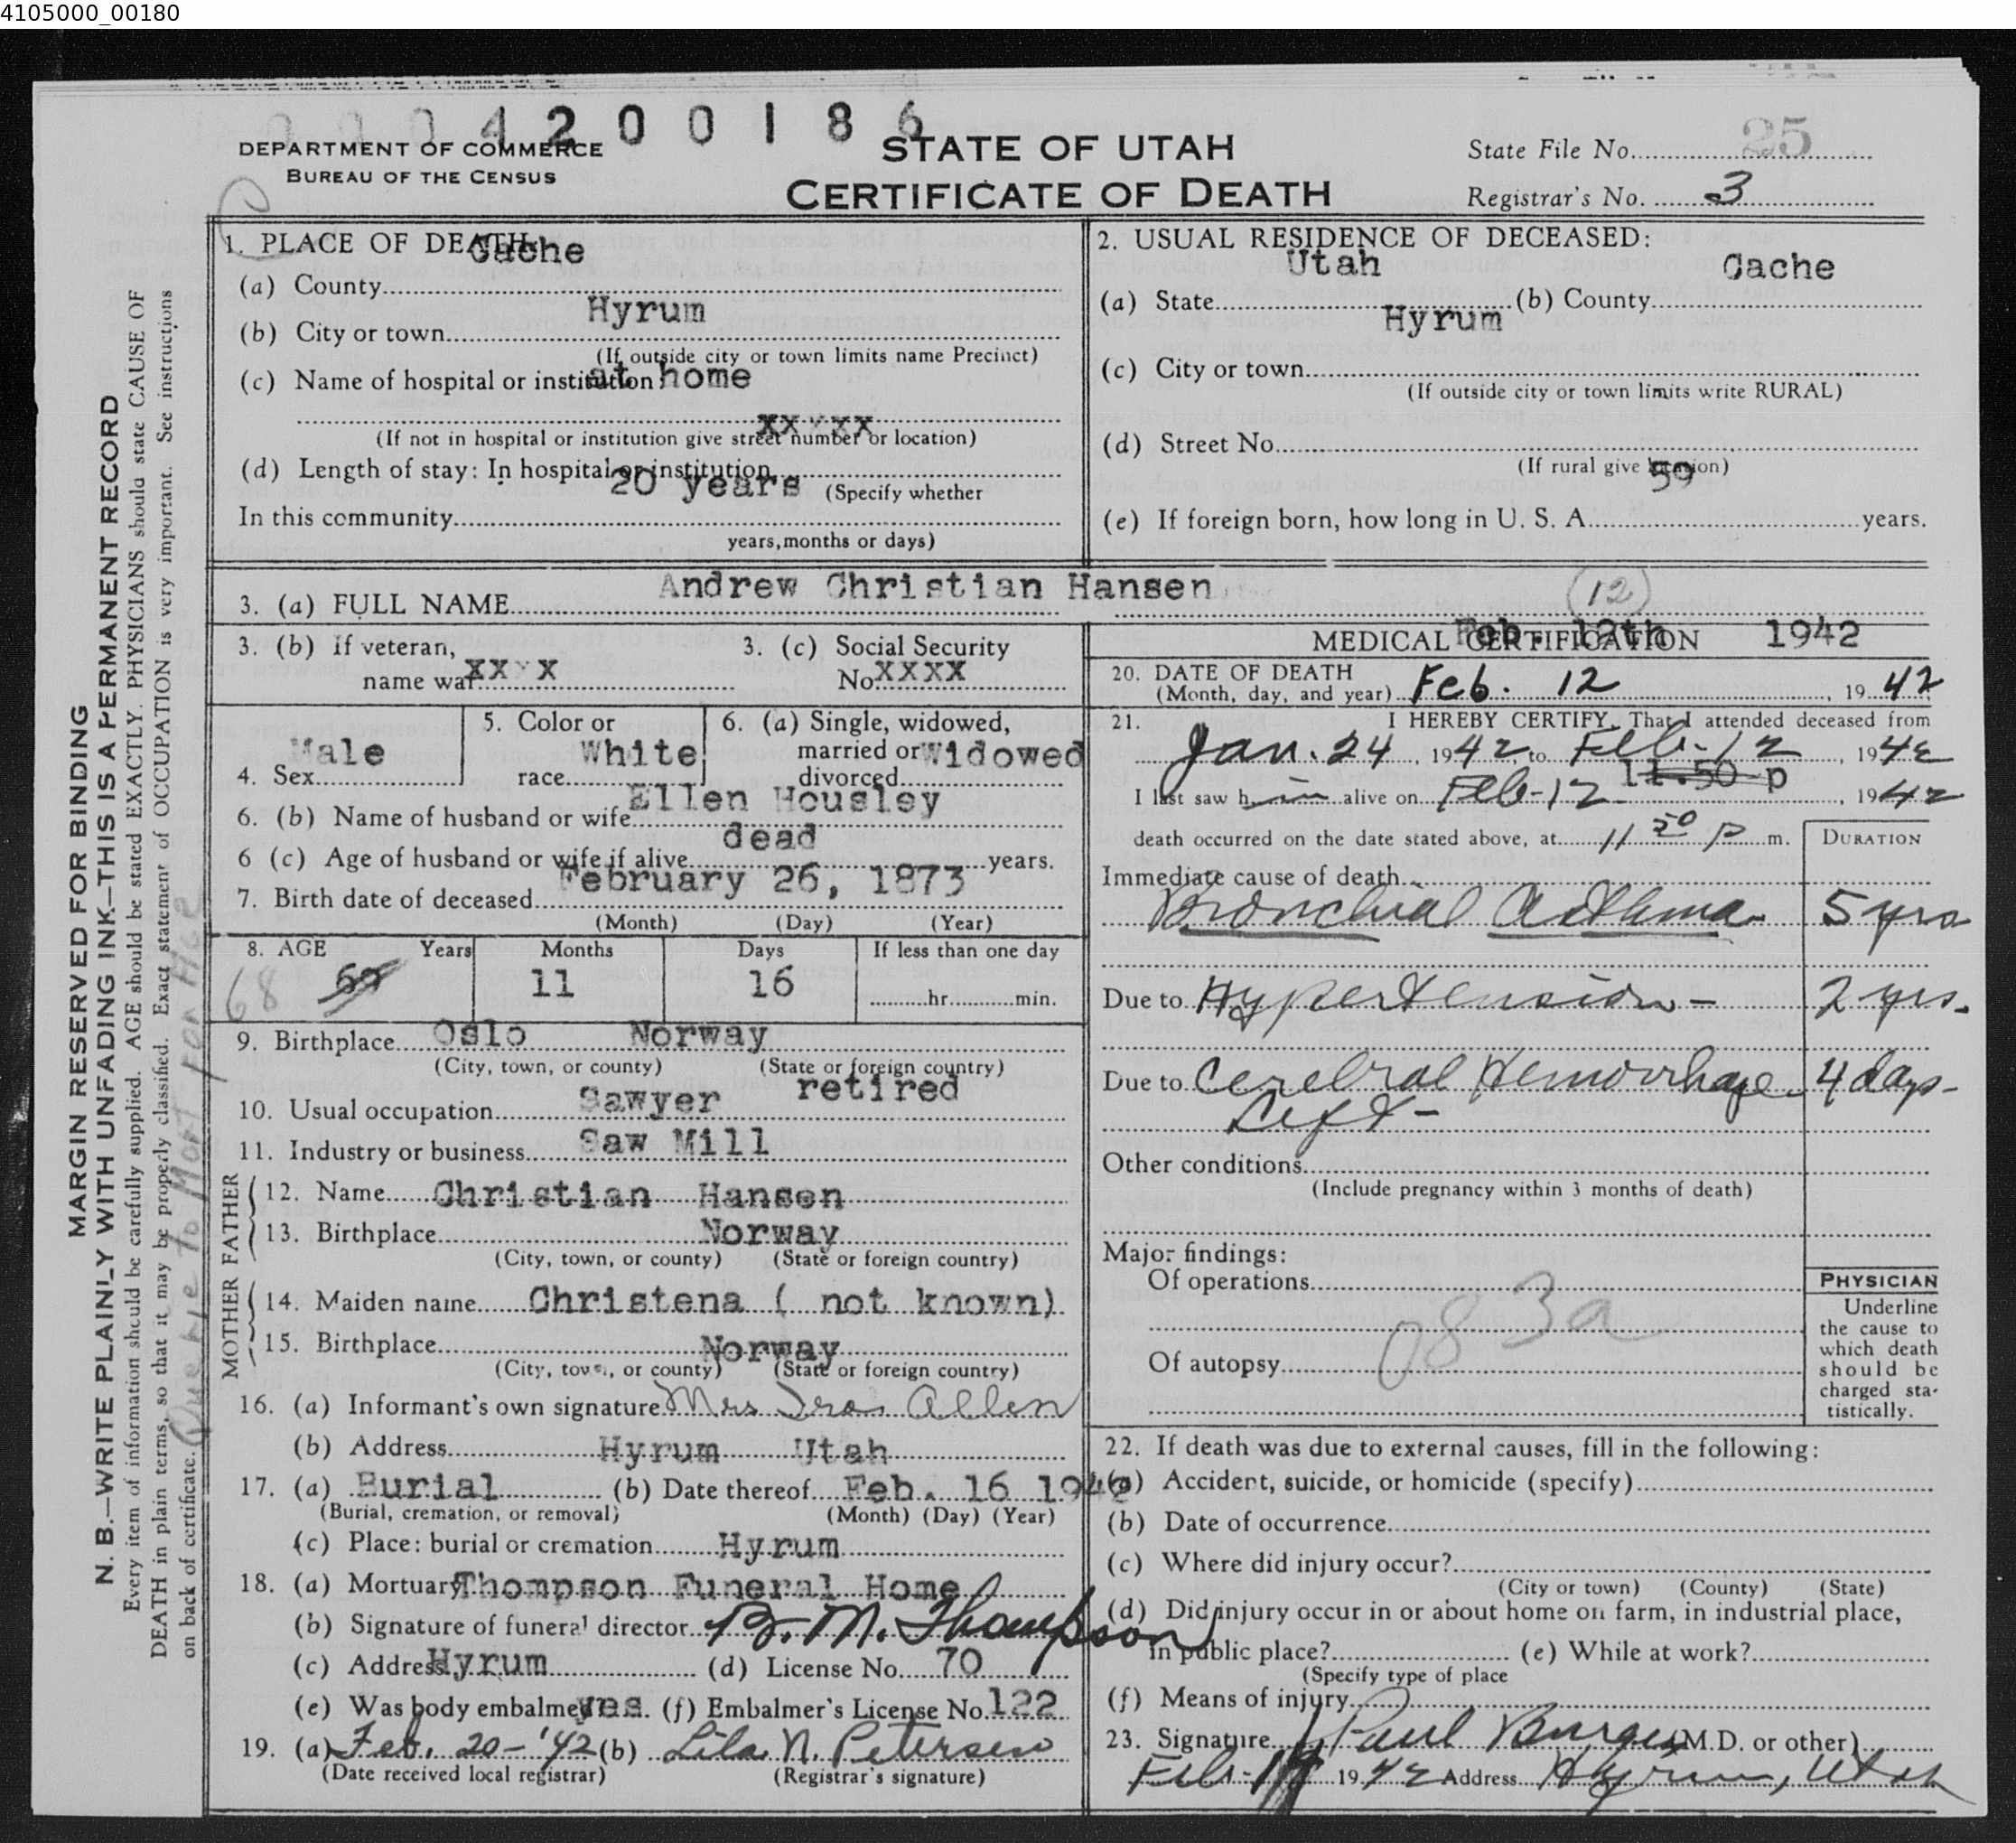 4105000_00180
0004200186
DEPARTMENT OF COMMERCE
BUREAU OF THE CENSUS
STATE OF UTAH
CERTIFICATE OF DEATH
State File No. 25
Registrar's No. 3
MARGIN RESERVED FOR BINDING
N. B.—WRITE PLAINLY WITH UNFADING INK—THIS IS A PERMANENT RECORD
Every item of information should be carefully supplied. AGE should be stated EXACTLY. PHYSICIANS should state CAUSE OF
DEATH in plain terms, so that it may be properly classified. Exact statement of OCCUPATION is very important. See instructions
on back of certificate.
1. PLACE OF DEATH:
(a) County Cache
(b) City or town Hyrum
(If outside city or town limits name Precinct)
(c) Name of hospital or institution: at home
xxxxx
(If not in hospital or institution give street number or location)
(d) Length of stay: In hospital or institution
20 years (Specify whether
In this community
years, months or days)
2. USUAL RESIDENCE OF DECEASED:
(a) State Utah (b) County Cache
(c) City or town Hyrum
(If outside city or town limits write RURAL)
(d) Street No.
(If rural give location)
(e) If foreign born, how long in U. S. A. 59 years.
3. (a) FULL NAME Andrew Christian Hansen
(12)
3. (b) If veteran,
name war xxxx
3. (c) Social Security
No. xxxx
4. Sex Male
5. Color or
race White
6. (a) Single, widowed,
married or
divorced Widowed
6. (b) Name of husband or wife Ellen Housley
6 (c) Age of husband or wife if alive dead years.
7. Birth date of deceased February 26, 1873
(Month) (Day) (Year)
8. AGE Years Months Days If less than one day
68 69 11 16 hr. min.
9. Birthplace Oslo Norway
(City, town, or county) (State or foreign country)
10. Usual occupation Sawyer retired
11. Industry or business Saw Mill
FATHER
12. Name Christian Hansen
13. Birthplace Norway
(City, town, or county) (State or foreign country)
MOTHER
14. Maiden name Christena ( not known)
15. Birthplace Norway
(City, town, or county) (State or foreign country)
16. (a) Informant's own signature Mrs Iras Allen
(b) Address Hyrum Utah
17. (a) Burial (b) Date thereof Feb. 16 1942
(Burial, cremation, or removal) (Month) (Day) (Year)
(c) Place: burial or cremation Hyrum
18. (a) Mortuary Thompson Funeral Home
(b) Signature of funeral director B. M. Thompson
(c) Address Hyrum (d) License No. 70
(e) Was body embalmed yes. (f) Embalmer's License No. 122
19. (a) Feb. 20-'42 (b) Lila N. Petersen
(Date received local registrar) (Registrar's signature)
MEDICAL CERTIFICATION
Feb. 12th 1942
20. DATE OF DEATH
(Month, day, and year) Feb. 12, 1942
21. I HEREBY CERTIFY, That I attended deceased from
Jan. 24, 1942, to Feb-12, 1942
11.50 p
I last saw him alive on Feb-12, 1942
death occurred on the date stated above, at 11 50 P m.
DURATION
Immediate cause of death
Bronchial Asthma 5 yrs
Due to Hypertension- 2 yrs.
Due to Cerebral Hemorrhage 4 days-
Left-
Other conditions
(Include pregnancy within 3 months of death)
Major findings:
Of operations
083a
Of autopsy
PHYSICIAN
Underline
the cause to
which death
should be
charged sta-
tistically.
22. If death was due to external causes, fill in the following:
(a) Accident, suicide, or homicide (specify)
(b) Date of occurrence
(c) Where did injury occur?
(City or town) (County) (State)
(d) Did injury occur in or about home on farm, in industrial place,
in public place? (e) While at work?
(Specify type of place
(f) Means of injury
23. Signature Paul Burgess (M.D. or other)
Feb. 1942 Address Hyrum, Utah